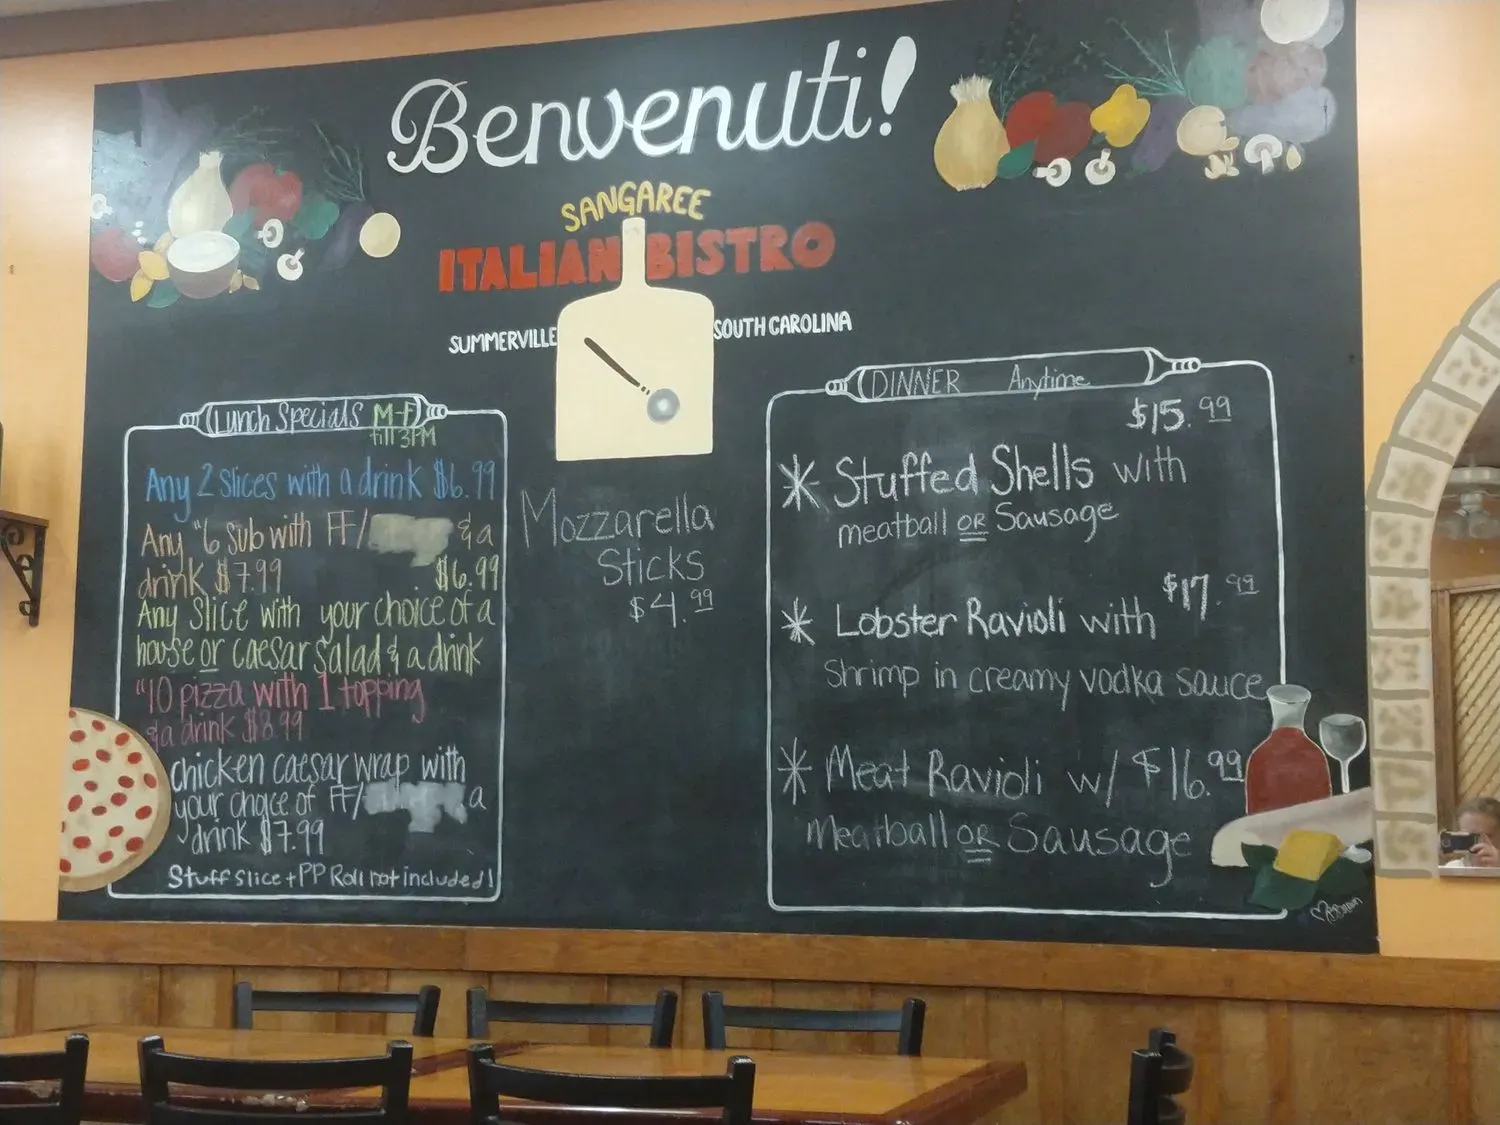 Benvenuti!
SANGAREE
ITALIAN BISTRO
SUMMERVILLE SOUTH CAROLINA
Lunch Specials M-F
till 3PM
Any 2 Slices with a drink $6.99
Any "6 Sub with FF/ & a
drink $7.99
$6.99
Any Slice with your choice of a
house or caesar Salad & a drink
"10 pizza with 1 topping
& a drink $8.99
chicken caesar wrap with
your choice of FF/ a
drink $7.99
Stuff Slice + PP Roll not included!
Mozzarella
Sticks
$4.99
DINNER Anytime
$15.99
* Stuffed Shells with
meatball OR Sausage
$17.99
* Lobster Ravioli with
Shrimp in creamy vodka sauce
* Meat Ravioli w/ $16.99
Meatball OR Sausage